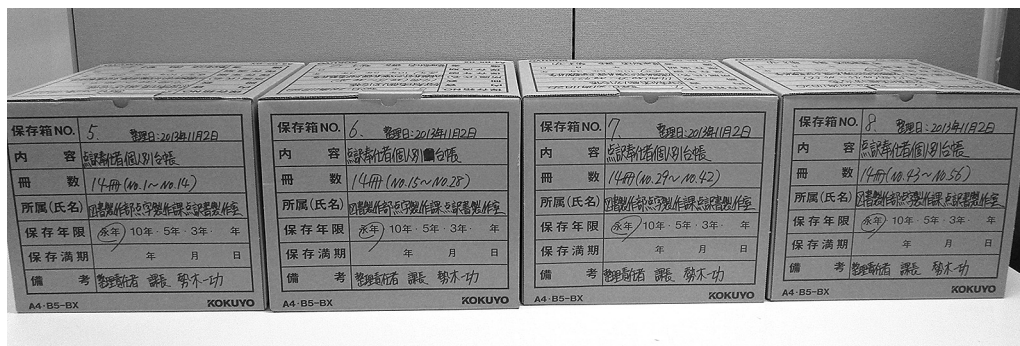 保存箱NO. 5. 整理日:2013年11月2日
内容 点訳奉仕者個人別台帳
冊数 14冊(No.1～No.14)
所属(氏名) 図書製作部点字製作課点訳書製作室
保存年限 永年 10年・5年・3年・ 年
保存満期 年 月 日
備考 整理責任者 課長 勢木一功
A4・B5-BX
保存箱NO. 6. 整理日:2013年11月2日
内容 点訳奉仕者個人別台帳
冊数 14冊(No.15～No.28)
所属(氏名) 図書製作部点字製作課点訳書製作室
保存年限 永年 10年・5年・3年・ 年
保存満期 年 月 日
備考 整理責任者 課長 勢木一功
A4・B5-BX KOKUYO
保存箱NO. 7. 整理日:2013年11月2日
内容 点訳奉仕者個人別台帳
冊数 14冊(No.29～No.42)
所属(氏名) 図書製作部点字製作課点訳書製作室
保存年限 永年 10年・5年・3年・ 年
保存満期 年 月 日
備考 整理責任者 課長 勢木一功
A4・B5-BX KOKUYO
保存箱NO. 8. 整理日:2013年11月2日
内容 点訳奉仕者個人別台帳
冊数 14冊(No.43～No.56)
所属(氏名) 図書製作部点字製作課点訳書製作室
保存年限 永年 10年・5年・3年・ 年
保存満期 年 月 日
備考 整理責任者 課長 勢木一功
A4・B5-BX KOKUYO
KOKUYO